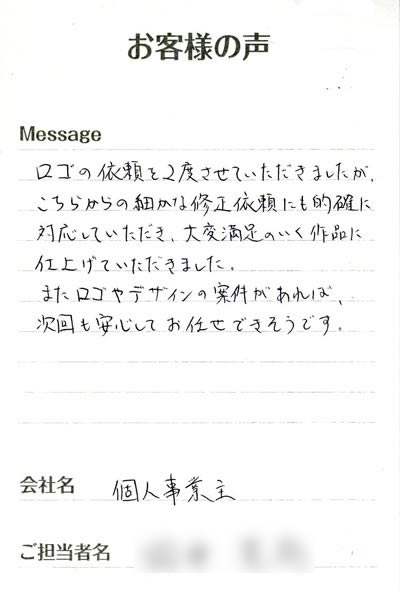 お客様の声
Message
ロゴの依頼を2度させていただきましたが、
こちらからの細かな修正依頼にも的確に
対応していただき、大変満足のいく作品に
仕上げていただきました。
またロゴやデザインの案件があれば、
次回も安心してお任せできそうです。
会社名 個人事業主
ご担当者名